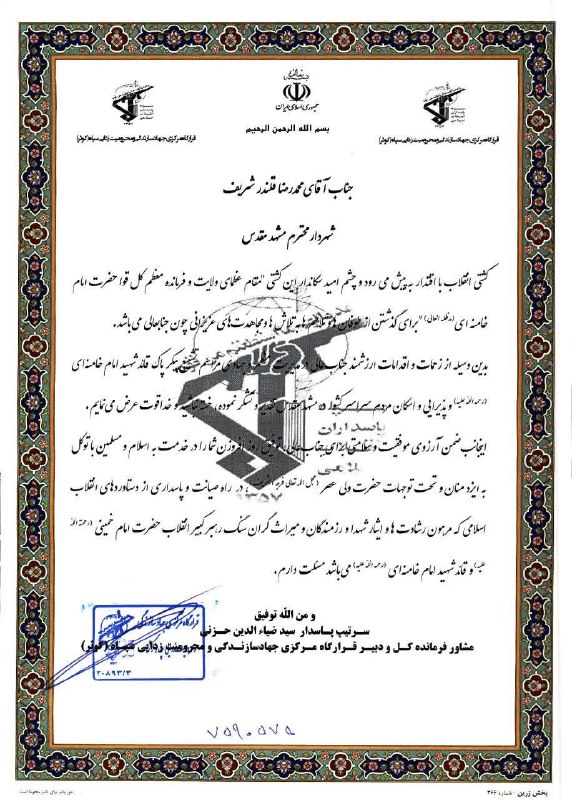 باسمه تعالی
جمهوری اسلامی ایران
بسم الله الرحمن الرحیم
قرارگاه مرکزی جهادسازندگی و محرومیت زدایی سپاه (کوثر)
قرارگاه مرکزی جهادسازندگی و محرومیت زدایی سپاه (کوثر)
جناب آقای محمدرضا قلندر شریف
شهردار محترم مشهد مقدس
کشتی انقلاب با اقتدار به پیش می رود و چشم امید سکاندار این کشتی "مقام عظمای ولایت و فرمانده معظم کل قوا حضرت امام
خامنه ای (مدظله العالی)" برای گذشتن از طوفان ها و تلاطم ها به تلاش ها و مجاهدت های عزیزانی چون جنابعالی می باشد.
بدین وسیله از زحمات و اقدامات ارزشمند جناب عالی در مدیریت و جهادی مراسم پیکر پاک قائد شهید امام خامنه ای
(رحمة الله علیه) و پذیرایی و اسکان مردم سراسر کشور در مشهد مقدس تقدیر و تشکر نموده، خسته نباشید و خداقوت عرض می نمایم.
اینجانب ضمن آرزوی موفقیت و سلامتی برای جناب عالی، توفیق روز افزون شما را در خدمت به اسلام و مسلمین با توکل
به ایزد منان و تحت توجهات حضرت ولی عصر (عجل الله تعالی فرجه الشریف)، در راه صیانت و پاسداری از دستاوردهای انقلاب
اسلامی که مرهون رشادت ها و ایثار شهدا و رزمندگان و میراث گران سنگ رهبر کبیر انقلاب حضرت امام خمینی (رحمة الله
علیه) و قائد شهید امام خامنه ای (رحمة الله علیه) می باشد مسئلت دارم.
پاسداران
۱۳۵۷
و من الله توفیق
سرتیپ پاسدار سید ضیاء الدین حزنی
مشاور فرمانده کل و دبیر قرارگاه مرکزی جهادسازندگی و محرومیت زدایی سپاه (کوثر)
۳۰۸۹۳/۳
۷۵۹۰۵۷۵
پخش زرین - شماره ۲۶۶